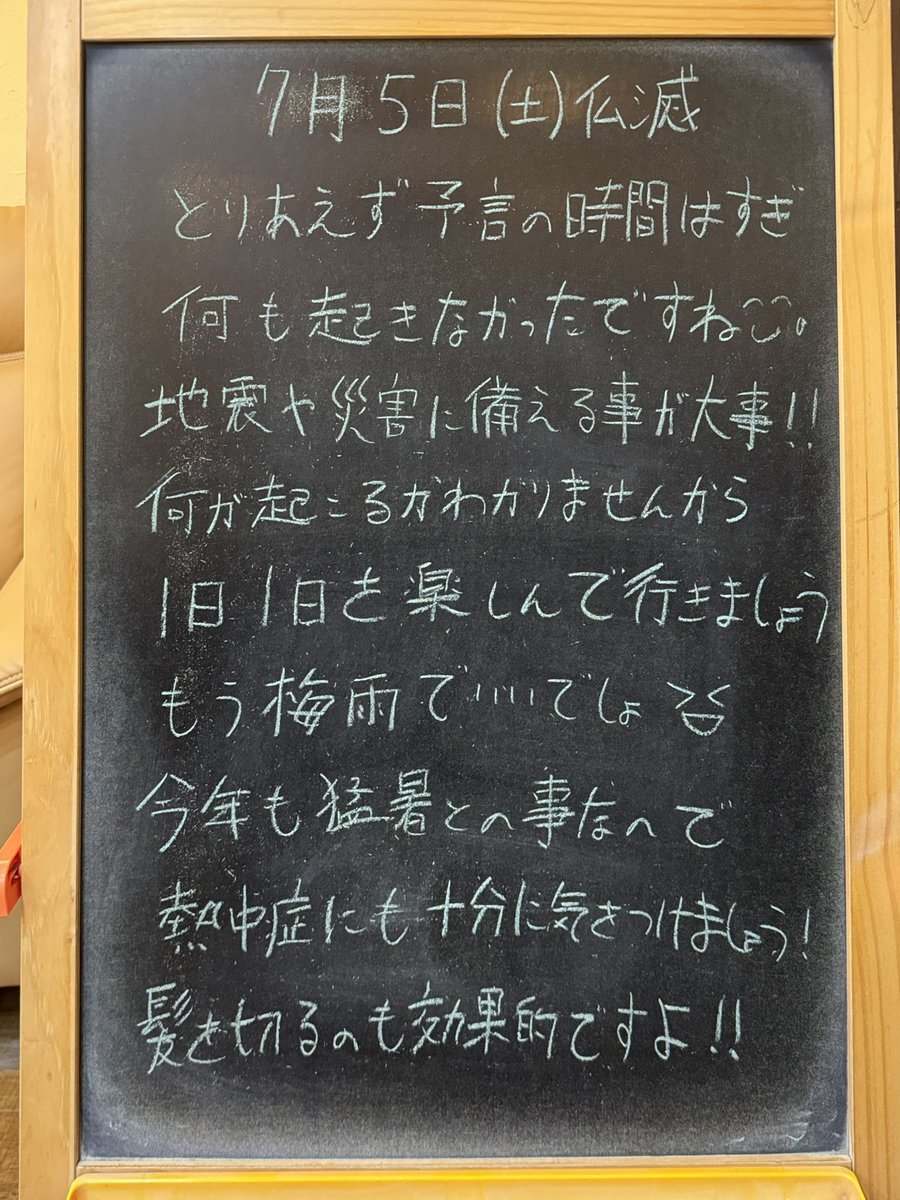 7月5日(土)仏滅
とりあえず予言の時間はすぎ
何も起きなかったですね。
地震や災害に備える事が大事!!
何が起こるかわかりませんから
1日1日を楽しんで行きましょう
もう梅雨でいいでしょ
今年も猛暑との事なので
熱中症にも十分に気をつけましょう!
髪を切るのも効果的ですよ!!